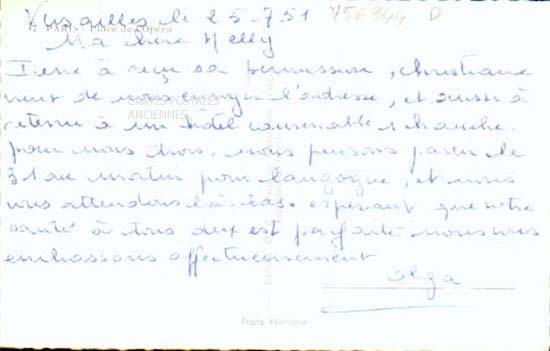 Versailles le 25-7.51 756344 D
7 PARIS - Place de l'Opéra
Ma chère Nelly
à reçu sa permission, Christiane
vient de nous envoyer l'adresse, et aussi à
CARTES POSTALES
ANCIENNES
retenu à un hotel convenable 1 chambre.
pour nous trois. nous pensons partir le
31 au matin pour Langogne, et nous
vous attendons là-bas. esperant que votre
santé à tous deux est parfaite nous vous
embrassons affectueusement
Olga
Photo Véritable